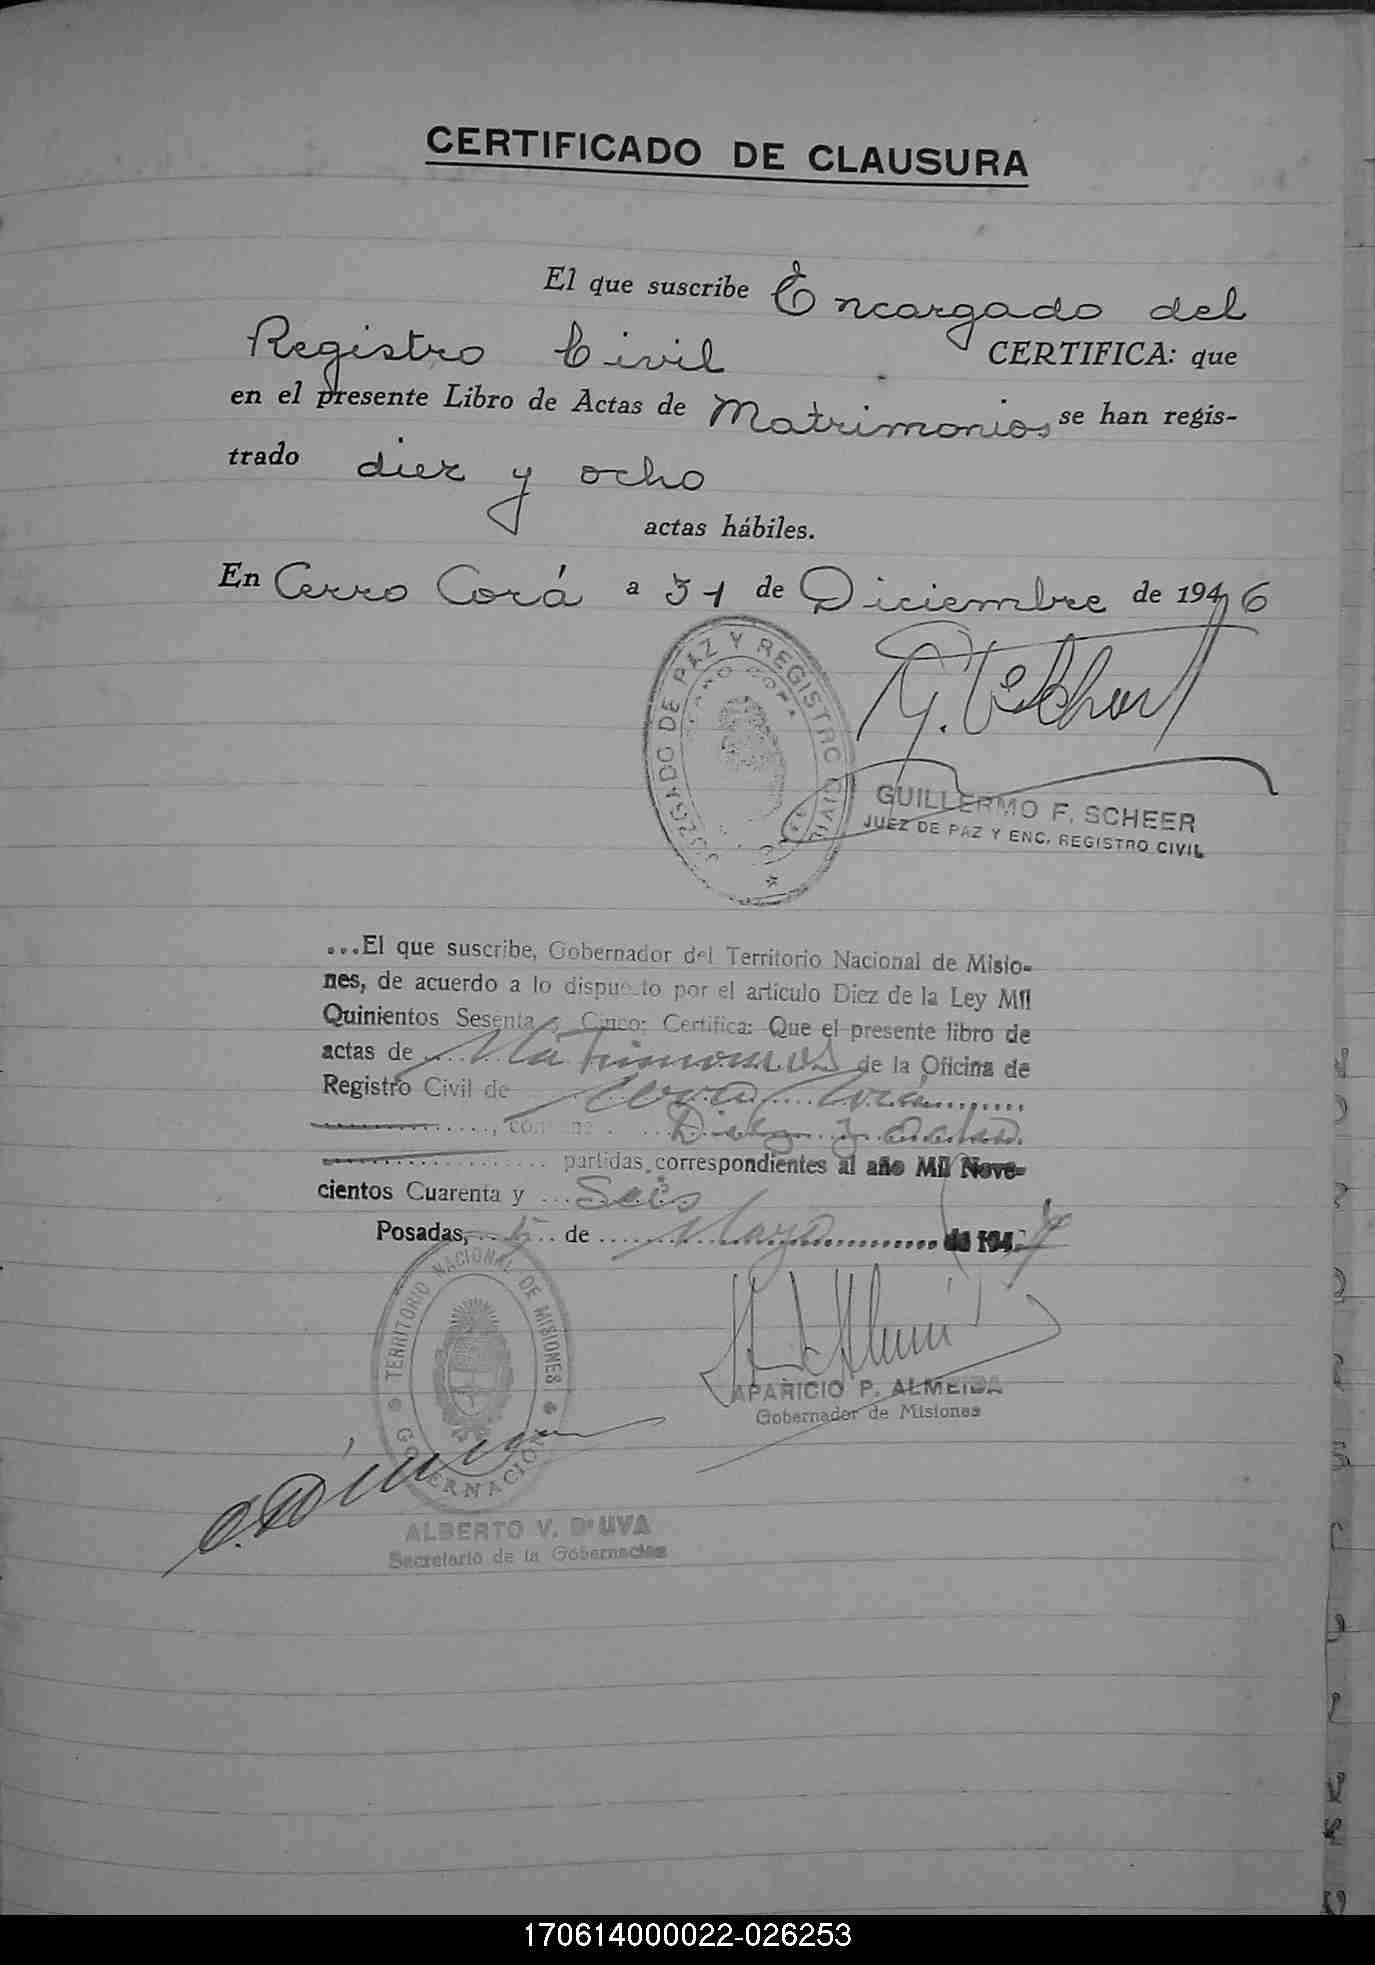 CERTIFICADO DE CLAUSURA
El que suscribe Encargado del
Registro Civil CERTIFICA: que
en el presente Libro de Actas de Matrimonios se han regis-
trado diez y ocho
actas hábiles.
En Cerro Corá a 31 de Diciembre de 1946
JUZGADO DE PAZ Y REGISTRO CIVIL
CERRO CORA
GUILLERMO F. SCHEER
JUEZ DE PAZ Y ENC. REGISTRO CIVIL
...El que suscribe, Gobernador del Territorio Nacional de Misio-
nes, de acuerdo a lo dispuesto por el artículo Diez de la Ley Mil
Quinientos Sesenta y Cinco; Certifica: Que el presente libro de
actas de Matrimonios de la Oficina de
Registro Civil de Cerro Corá
Diez y ocho
partidas correspondientes al año Mil Nove-
cientos Cuarenta y Seis
Posadas, 5 de Mayo de 1947
TERRITORIO NACIONAL DE MISIONES
GOBERNACION
APARICIO P. ALMEIDA
Gobernador de Misiones
ALBERTO V. D'UVA
Secretario de la Gobernación
170614000022-026253